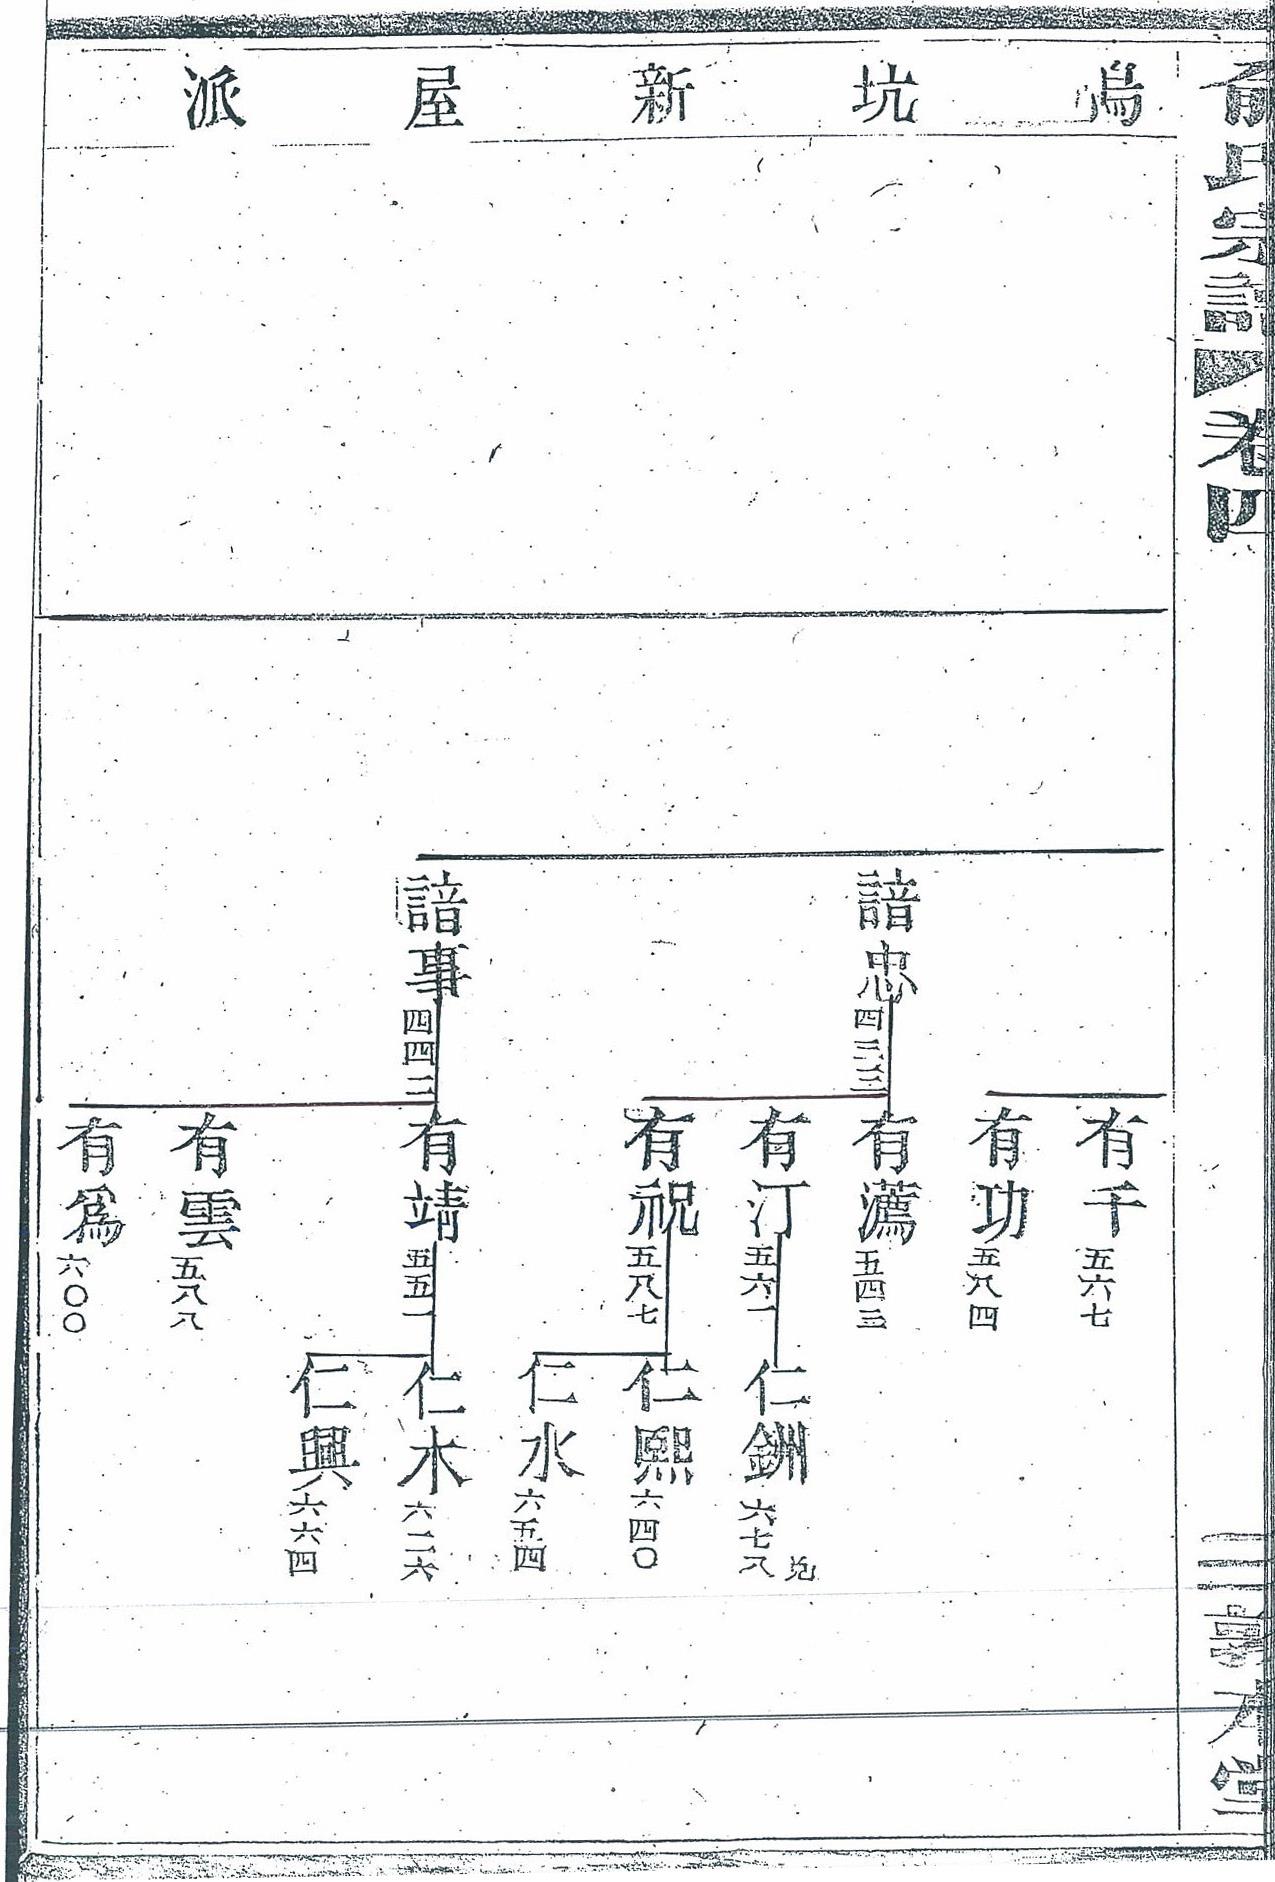 俞氏宗譜 卷四
烏坑新屋派
有千 五六七
有功 五八四
諳忠 四三三
有䓲 五四三
有汀 五六一
仁銂 六七八
有祝 五八七
仁熙 六四〇
仁水 六五四
諳事 四四三
有靖 五五一
仁木 六二六
仁興 六六四
有雲 五八八
有爲 六〇〇